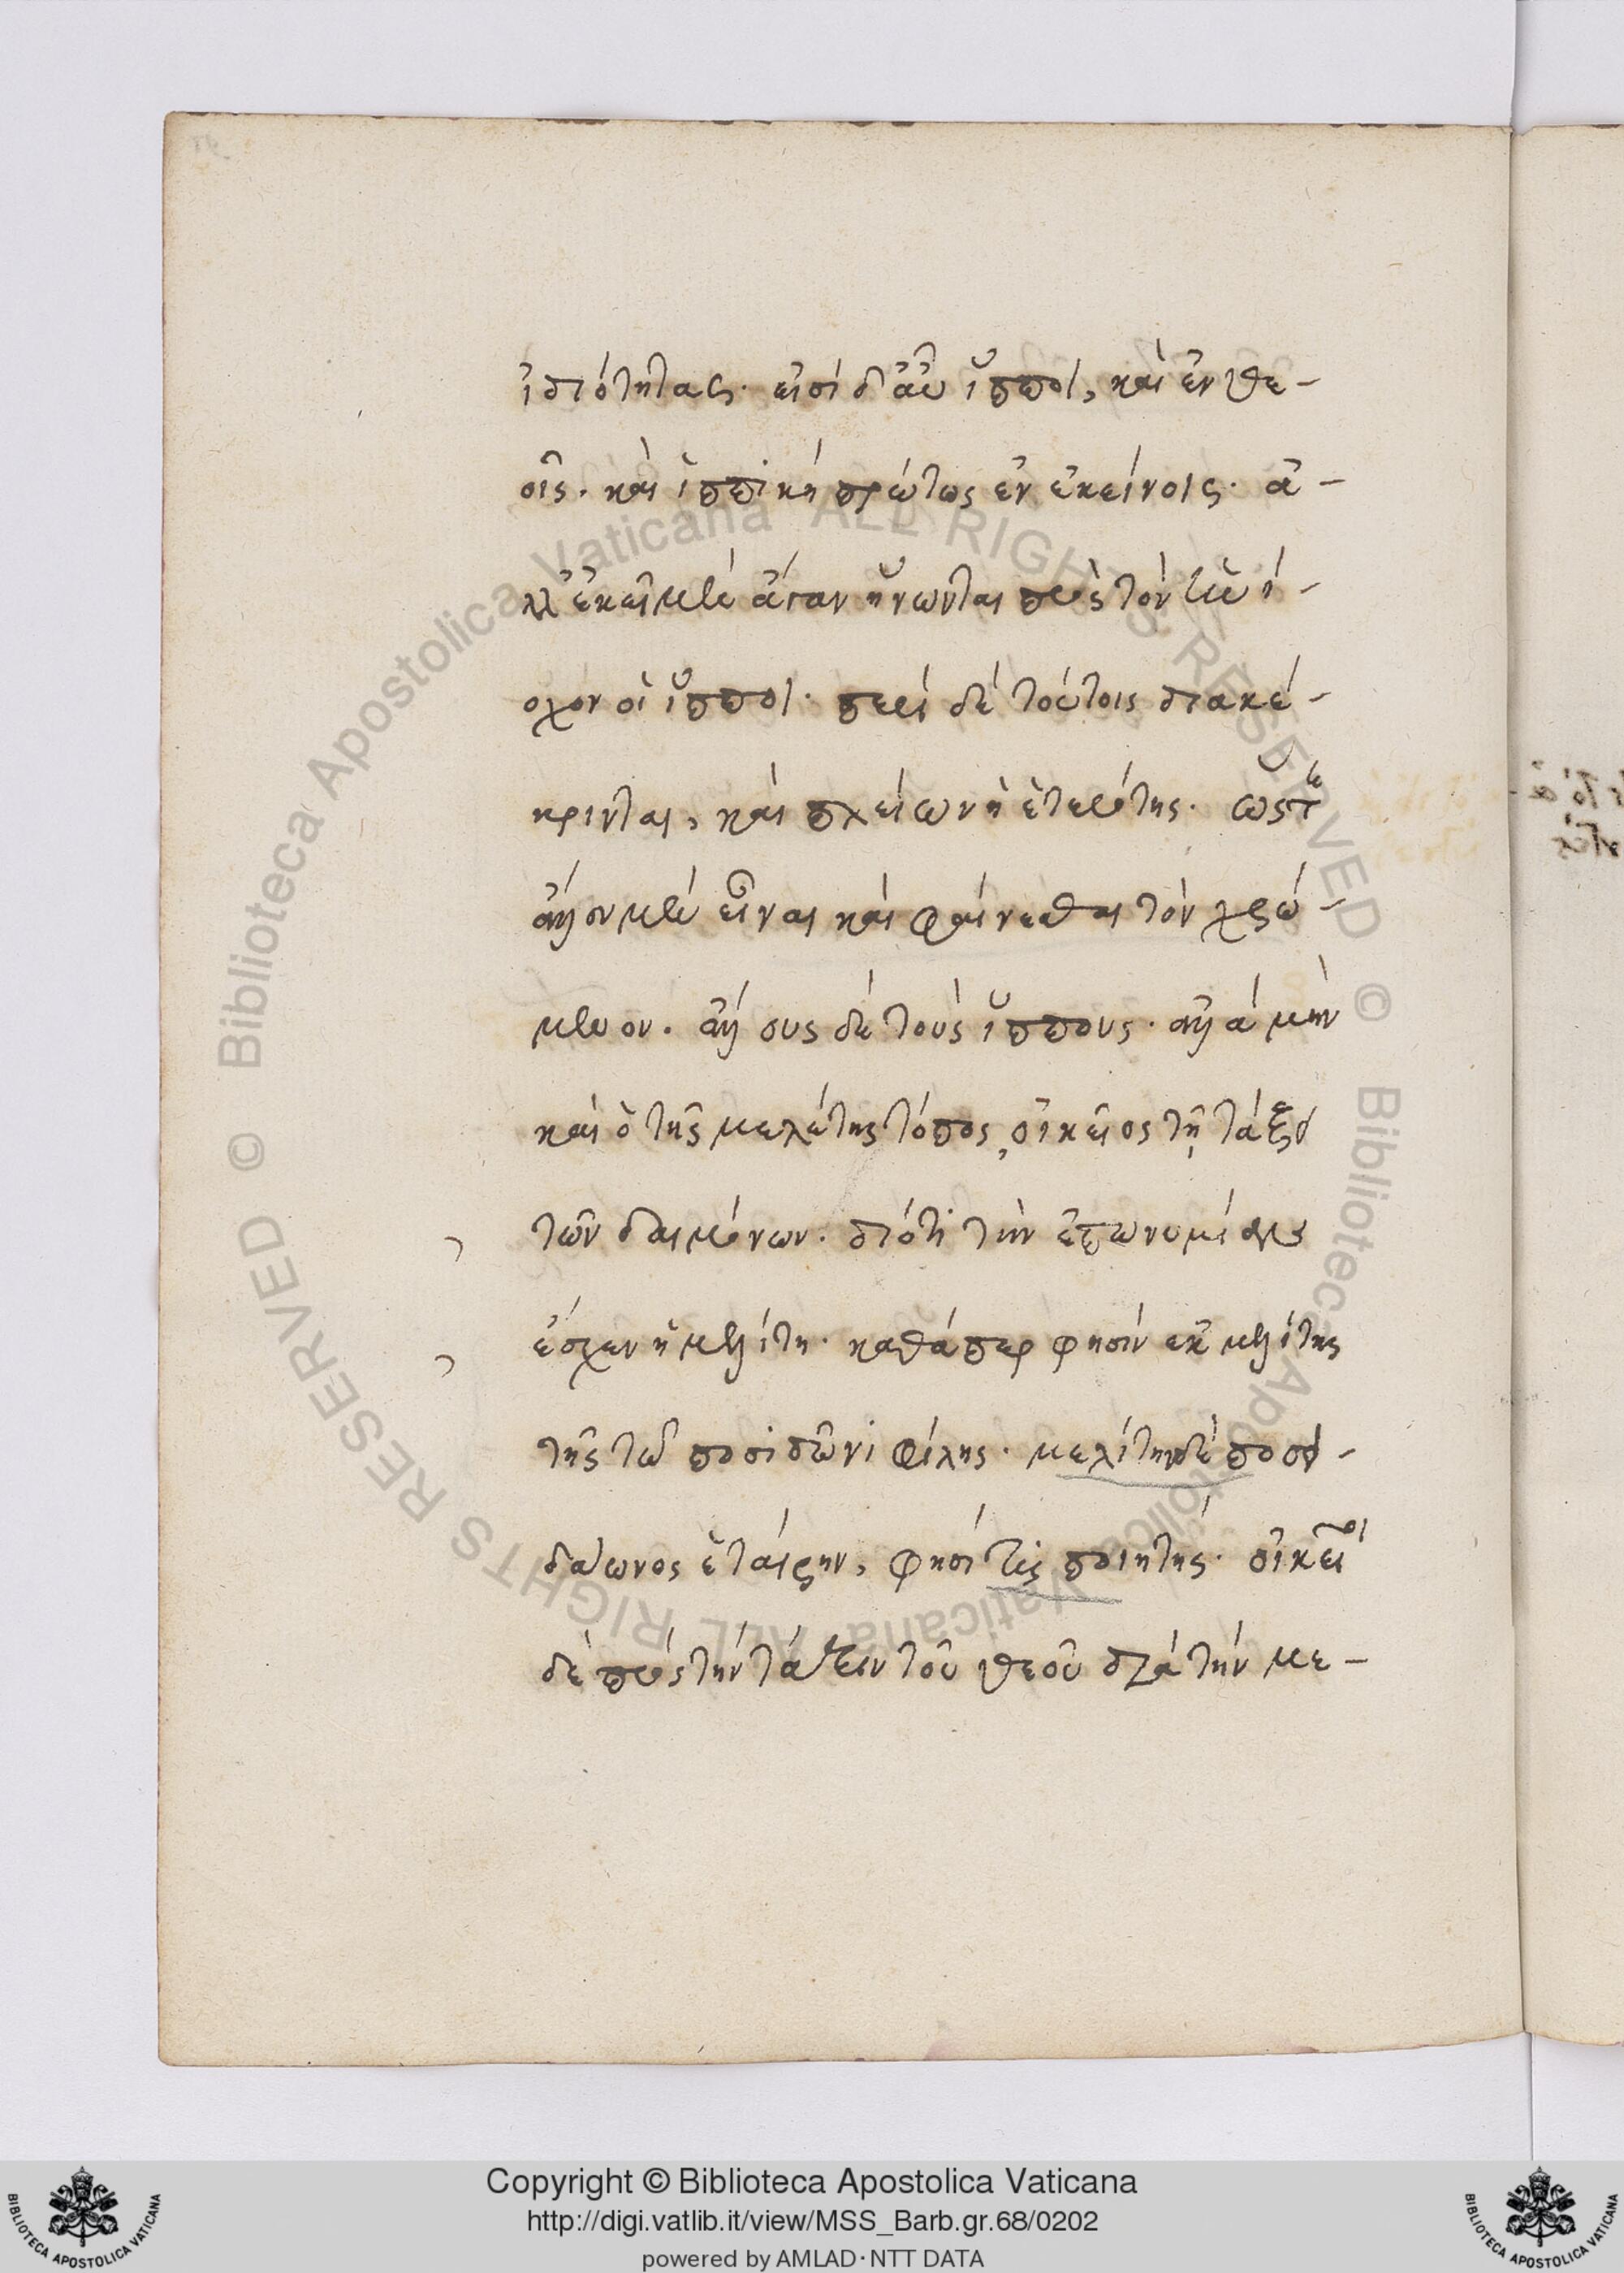 ἰδιότητας· εἰσὶ δ' αὖ ἵπποι, καὶ ἐν θε-
οῖς. καὶ ἱππικὴ πρώτως ἐν ἐκείνοις· ἀ-
λλ' ἐκεῖ μὲν ἄγαν ἥνωνται πρὸς τὸν ἡνί-
οχον οἱ ἵπποι· περὶ δὲ τούτοις διακέ-
κρινται, καὶ πλείων ἡ ἑτερότης· ὥστε
ἄλλον μὲν εἶναι καὶ φαίνεσθαι τὸν χρώ-
μενον. ἄλλους δὲ τοὺς ἵππους. ἀλλὰ μὴν
καὶ ὁ τῆς μελέτης τόπος, οἰκεῖος τῇ τάξει
τῶν δαιμόνων. διότι τὴν ἐπωνυμίαν
ἔσχεν ἡ μελίτη· καθάπερ φησὶν ἐκ μελίτης
τῆς τῶ ποσιδῶνι φίλης· μελίτην δὲ ποσει-
δάωνος ἑταίρην, φησί τις ποιητής· οἰκεῖοι
δὲ πρὸς τὴν τάξιν τοῦ θεοῦ διὰ τὴν με-
Copyright © Biblioteca Apostolica Vaticana
http://digi.vatlib.it/view/MSS_Barb.gr.68/0202
powered by AMLAD·NTT DATA
BIBLIOTECA APOSTOLICA VATICANA
BIBLIOTECA APOSTOLICA VATICANA
© Biblioteca Apostolica Vaticana ALL RIGHTS RESERVED © Biblioteca Apostolica Vaticana ALL RIGHTS RESERVED